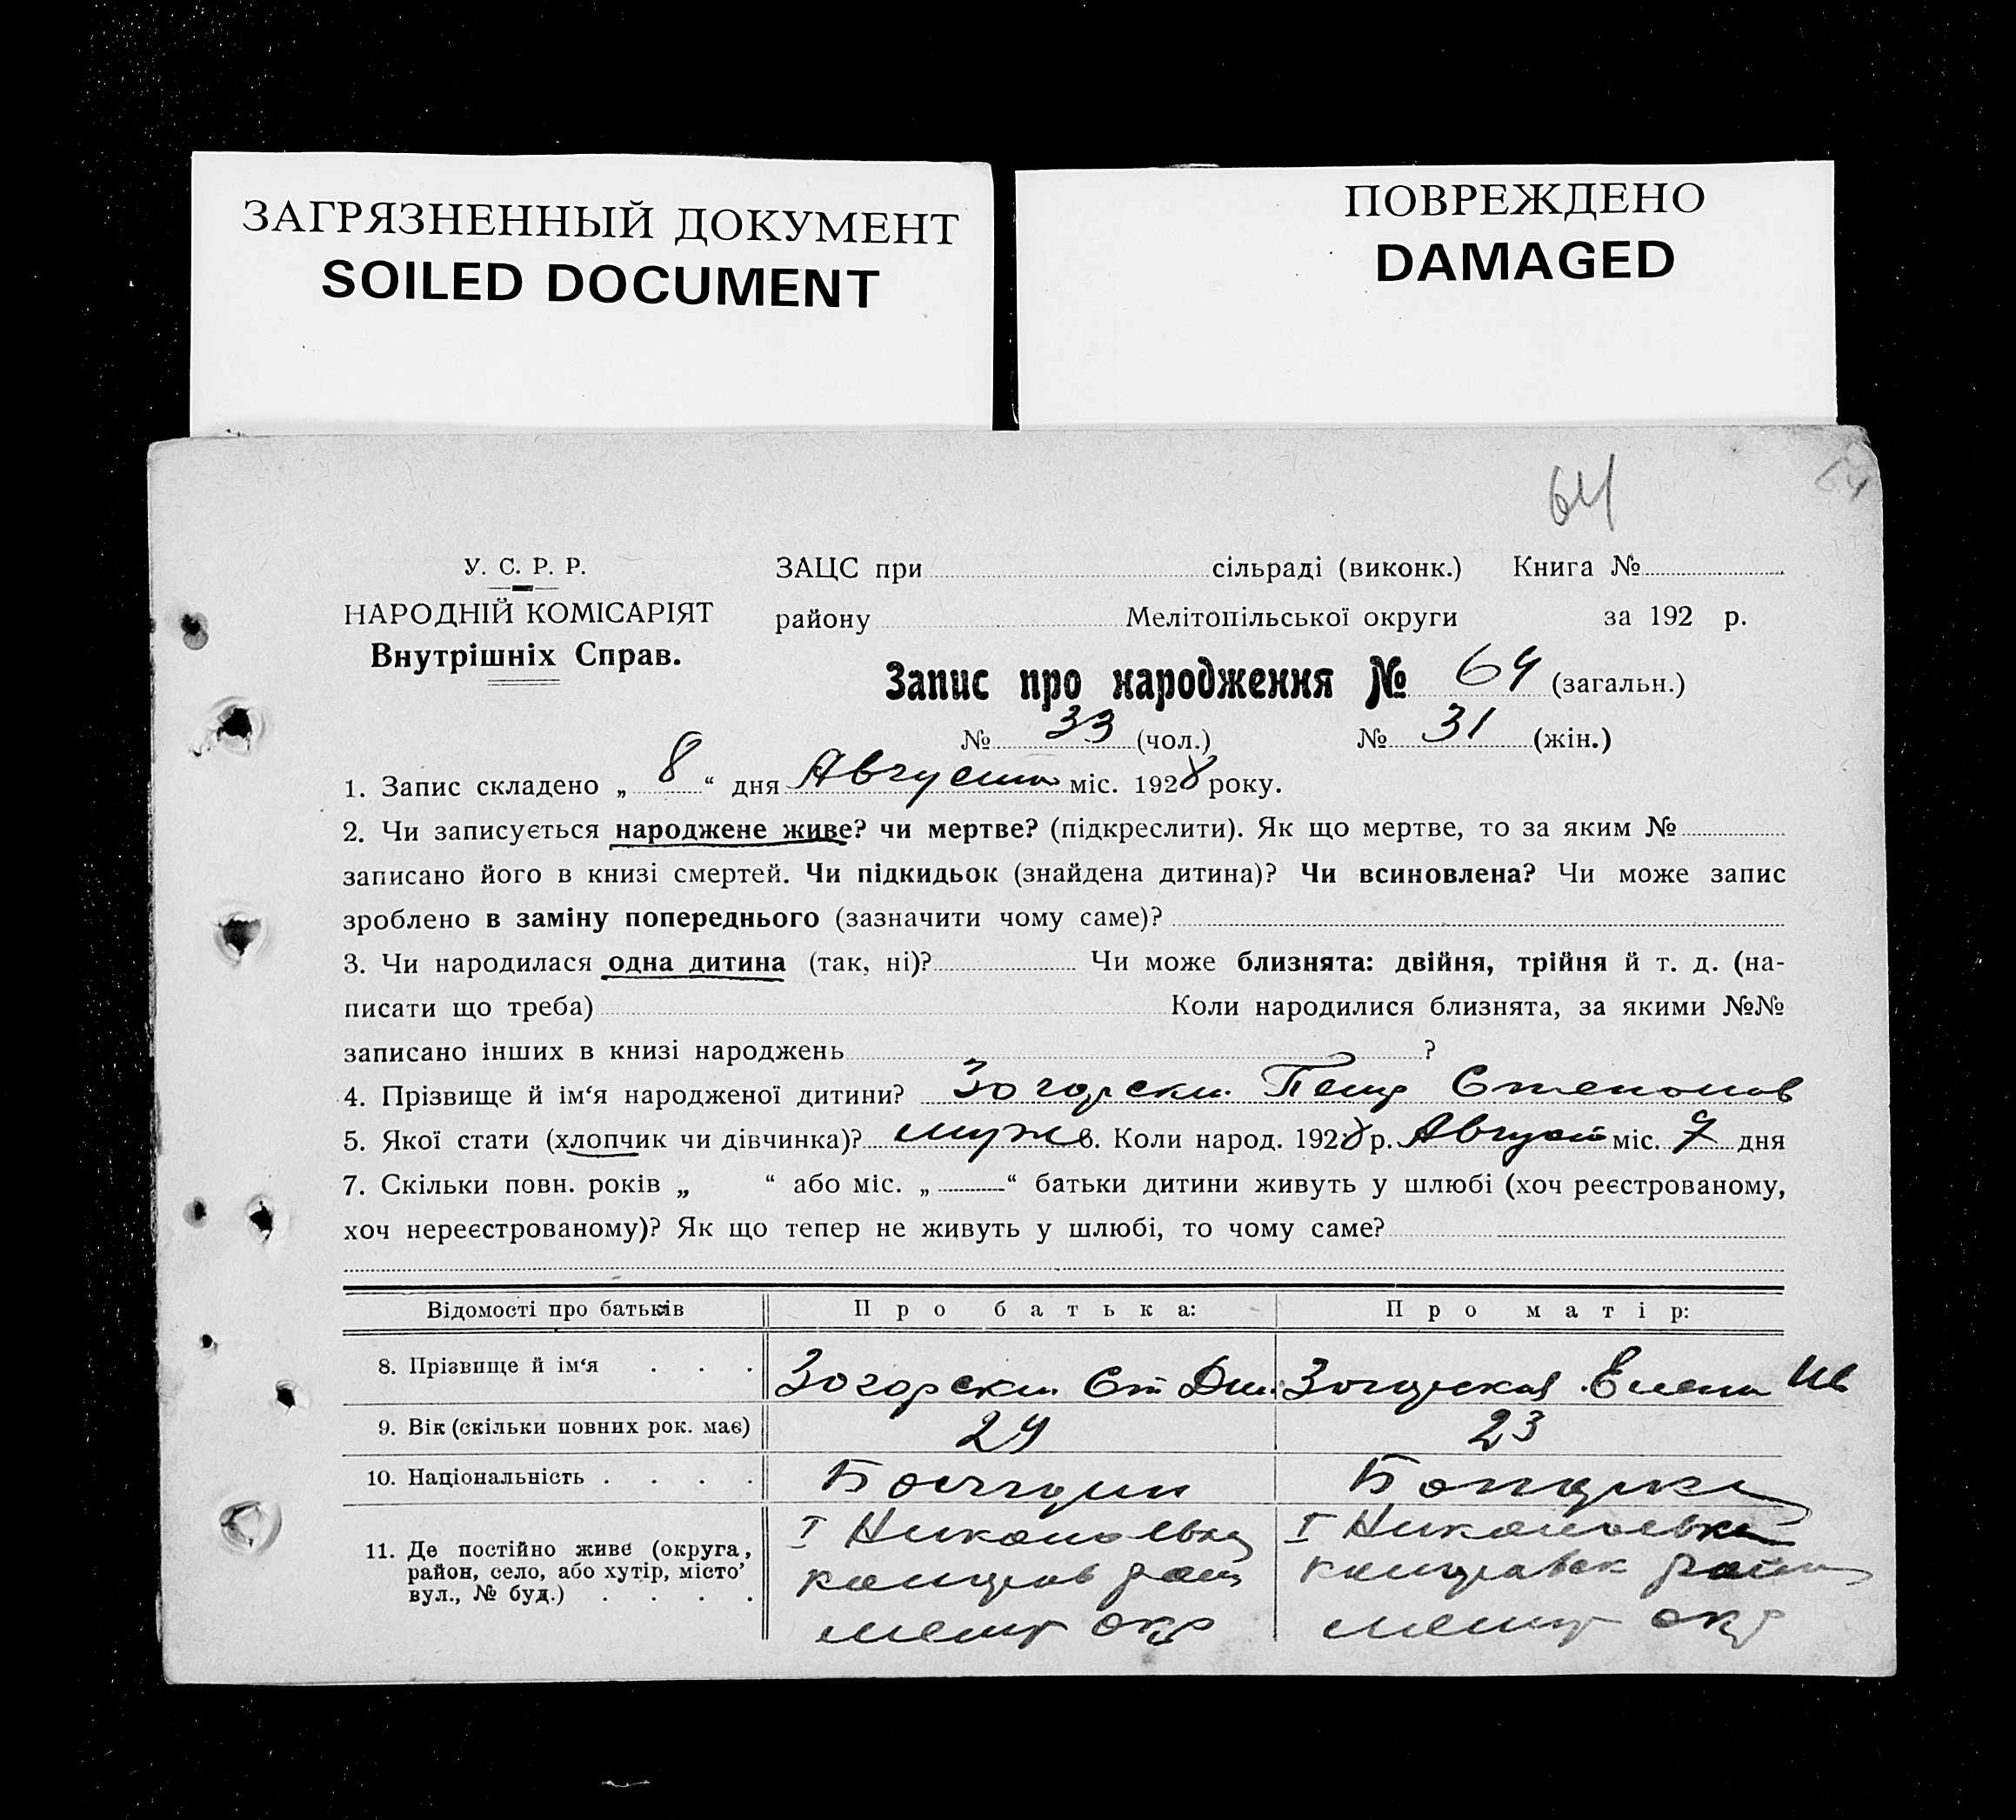 ЗАГРЯЗНЕННЫЙ ДОКУМЕНТ
SOILED DOCUMENT
ПОВРЕЖДЕНО
DAMAGED
64
У. С. Р. Р.
НАРОДНІЙ КОМІСАРІЯТ
Внутрішніх Справ.
ЗАЦС при сільраді (виконк.) Книга №
району Мелітопільської округи за 192 р.
Запис про народження № 64 (загальн.)
№ 33 (чол.) № 31 (жін.)
1. Запис складено „ 8 “ дня Августа міс. 1928 року.
2. Чи записується народжене живе? чи мертве? (підкреслити). Як що мертве, то за яким №
записано його в книзі смертей. Чи підкидьок (знайдена дитина)? Чи всиновлена? Чи може запис
зроблено в заміну попереднього (зазначити чому саме)?
3. Чи народилася одна дитина (так, ні)? Чи може близнята: двійня, трійня й т. д. (на-
писати що треба) Коли народилися близнята, за якими №№
записано інших в книзі народжень ?
4. Прізвище й ім‘я народженої дитини? Зогорски Степонов
5. Якої стати (хлопчик чи дівчинка)? муж 6. Коли народ. 1928 р. Август міс. 7 дня
7. Скільки повн. років „ “ або міс. „ “ батьки дитини живуть у шлюбі (хоч реєстрованому,
хоч нереєстрованому)? Як що тепер не живуть у шлюбі, то чому саме?
Відомості про батьків
Про батька:
Про матір:
8. Прізвище й ім‘я . . .
Зогорски Ст Дм.
Зогорская Елена Ив
9. Вік (скільки повних рок. має)
29
23
10. Національність . . . .
Болгарин
Болгарка
11. Де постійно живе (округа,
район, село, або хутір, місто
вул., № буд.) . . . .
I Николаевка
рай
мелит окр
I Николаевка
район
мелит окр